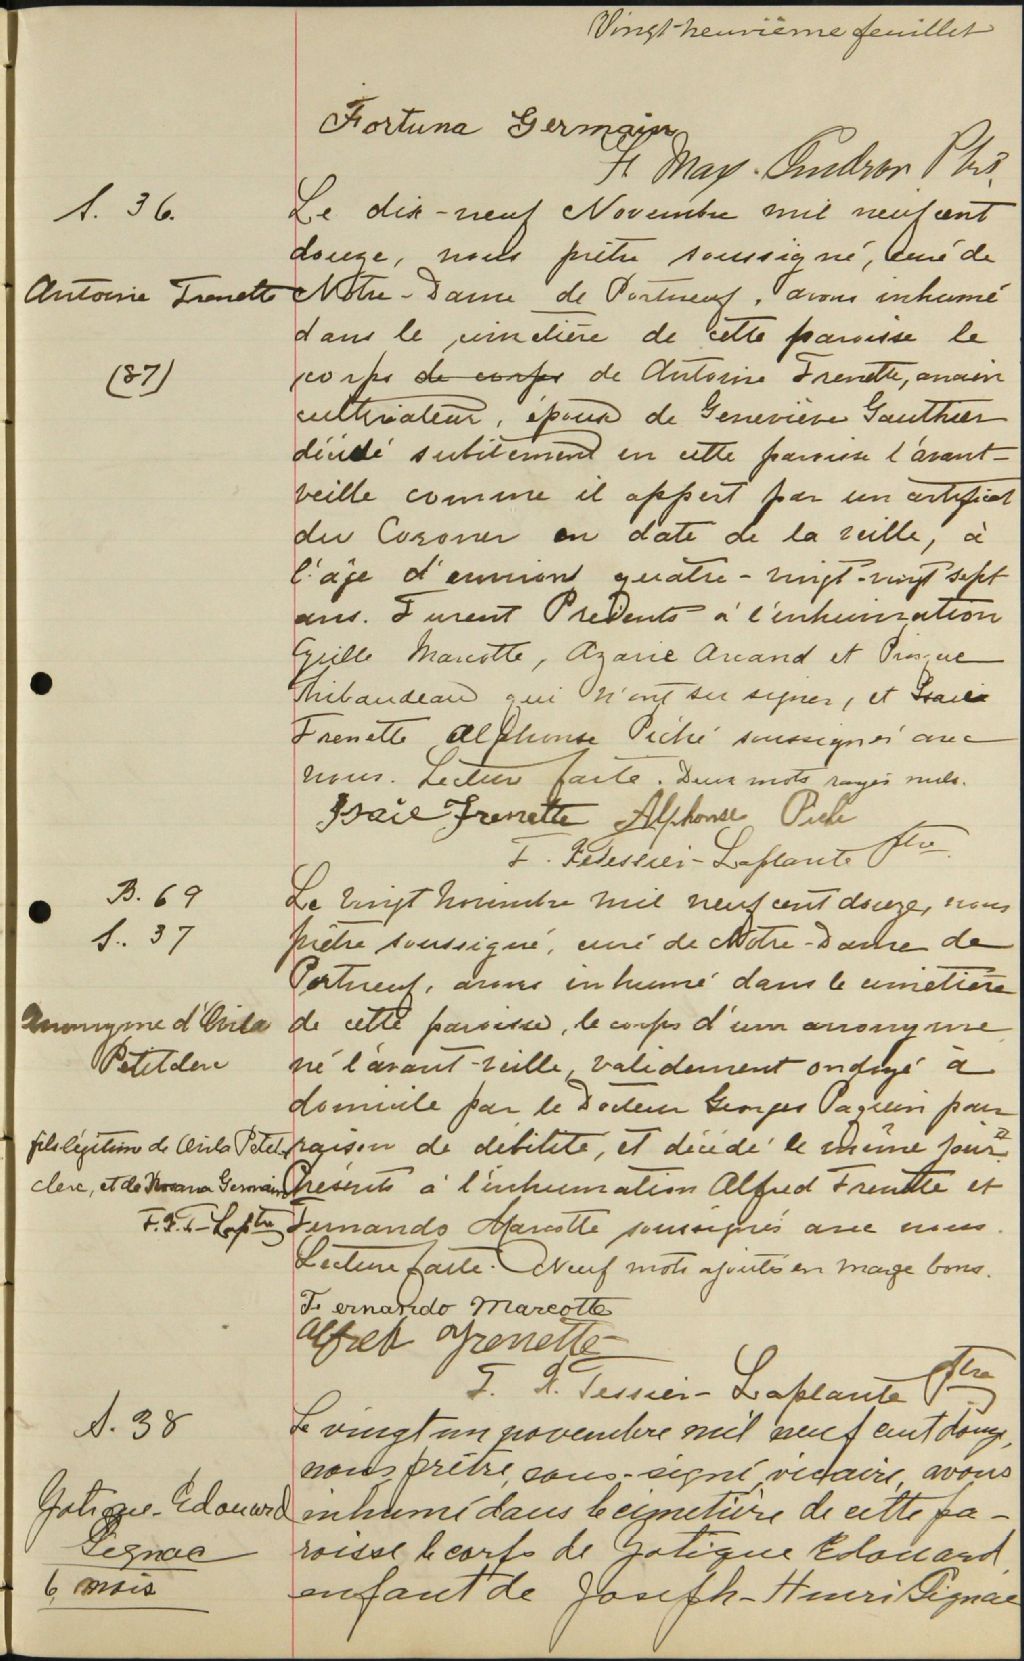 Vingt-neuvième feuillet
Fortuna Germain
Max. Gendron Ptre.
S. 36.
Antoine Frenette
(87)
Le dix-neuf Novembre mil neuf cent
douze, nous prêtre soussigné, curé de
Notre-Dame de Portneuf, avons inhumé
dans le cimetière de cette paroisse le
corps de corps de Antoine Frenette, ancien
cultivateur, époux de Geneviève Gauthier
décédé subitement en cette paroisse l'avant-
veille comme il appert par un certificat
du Coroner en date de la veille, à
l'âge d'environ quatre-vingt-vingt sept
ans. Furent Présents à l'inhumation
Marcotte, Azarie Arcand et
Thibaudeau qui n'ont su signer, et Isaïe
Frenette Alphonse Piché soussignés avec
nous. Lecture faite. Deux mots rayés nuls.
Isaïe Frenette Alphonse Piché
F. X. Tessier-Laplante ptre
B. 69
S. 37
Anonyme d'Avila
Petitclerc
fils légitime de Avila Petit-
clerc, et de Rosana Germain
F.X.T-Lap ptre
Le vingt Novembre mil neuf cent douze, nous
prêtre soussigné, curé de Notre-Dame de
Portneuf, avons inhumé dans le cimetière
de cette paroisse, le corps d'un anonyme
né l'avant-veille, validement ondoyé à
domicile par le Docteur Georges Paquin pour
raison de débilité, et décédé le même jour.
Présents à l'inhumation Alfred Frenette et
Fernando Marcotte soussignés avec nous.
Lecture faite. Neuf mots ajoutés en marge bons.
Fernando Marcotte
Alfred Frenette
F. X. Tessier-Laplante Ptre
S. 38
Zotique-Edouard
Gignac
6 mois
Le vingt un novembre mil neuf cent douze,
nous prêtre, sous-signé, vicaire, avons
inhumé dans le cimetière de cette pa-
roisse le corps de Zotique Edouard
enfant de Joseph-Henri Gignac